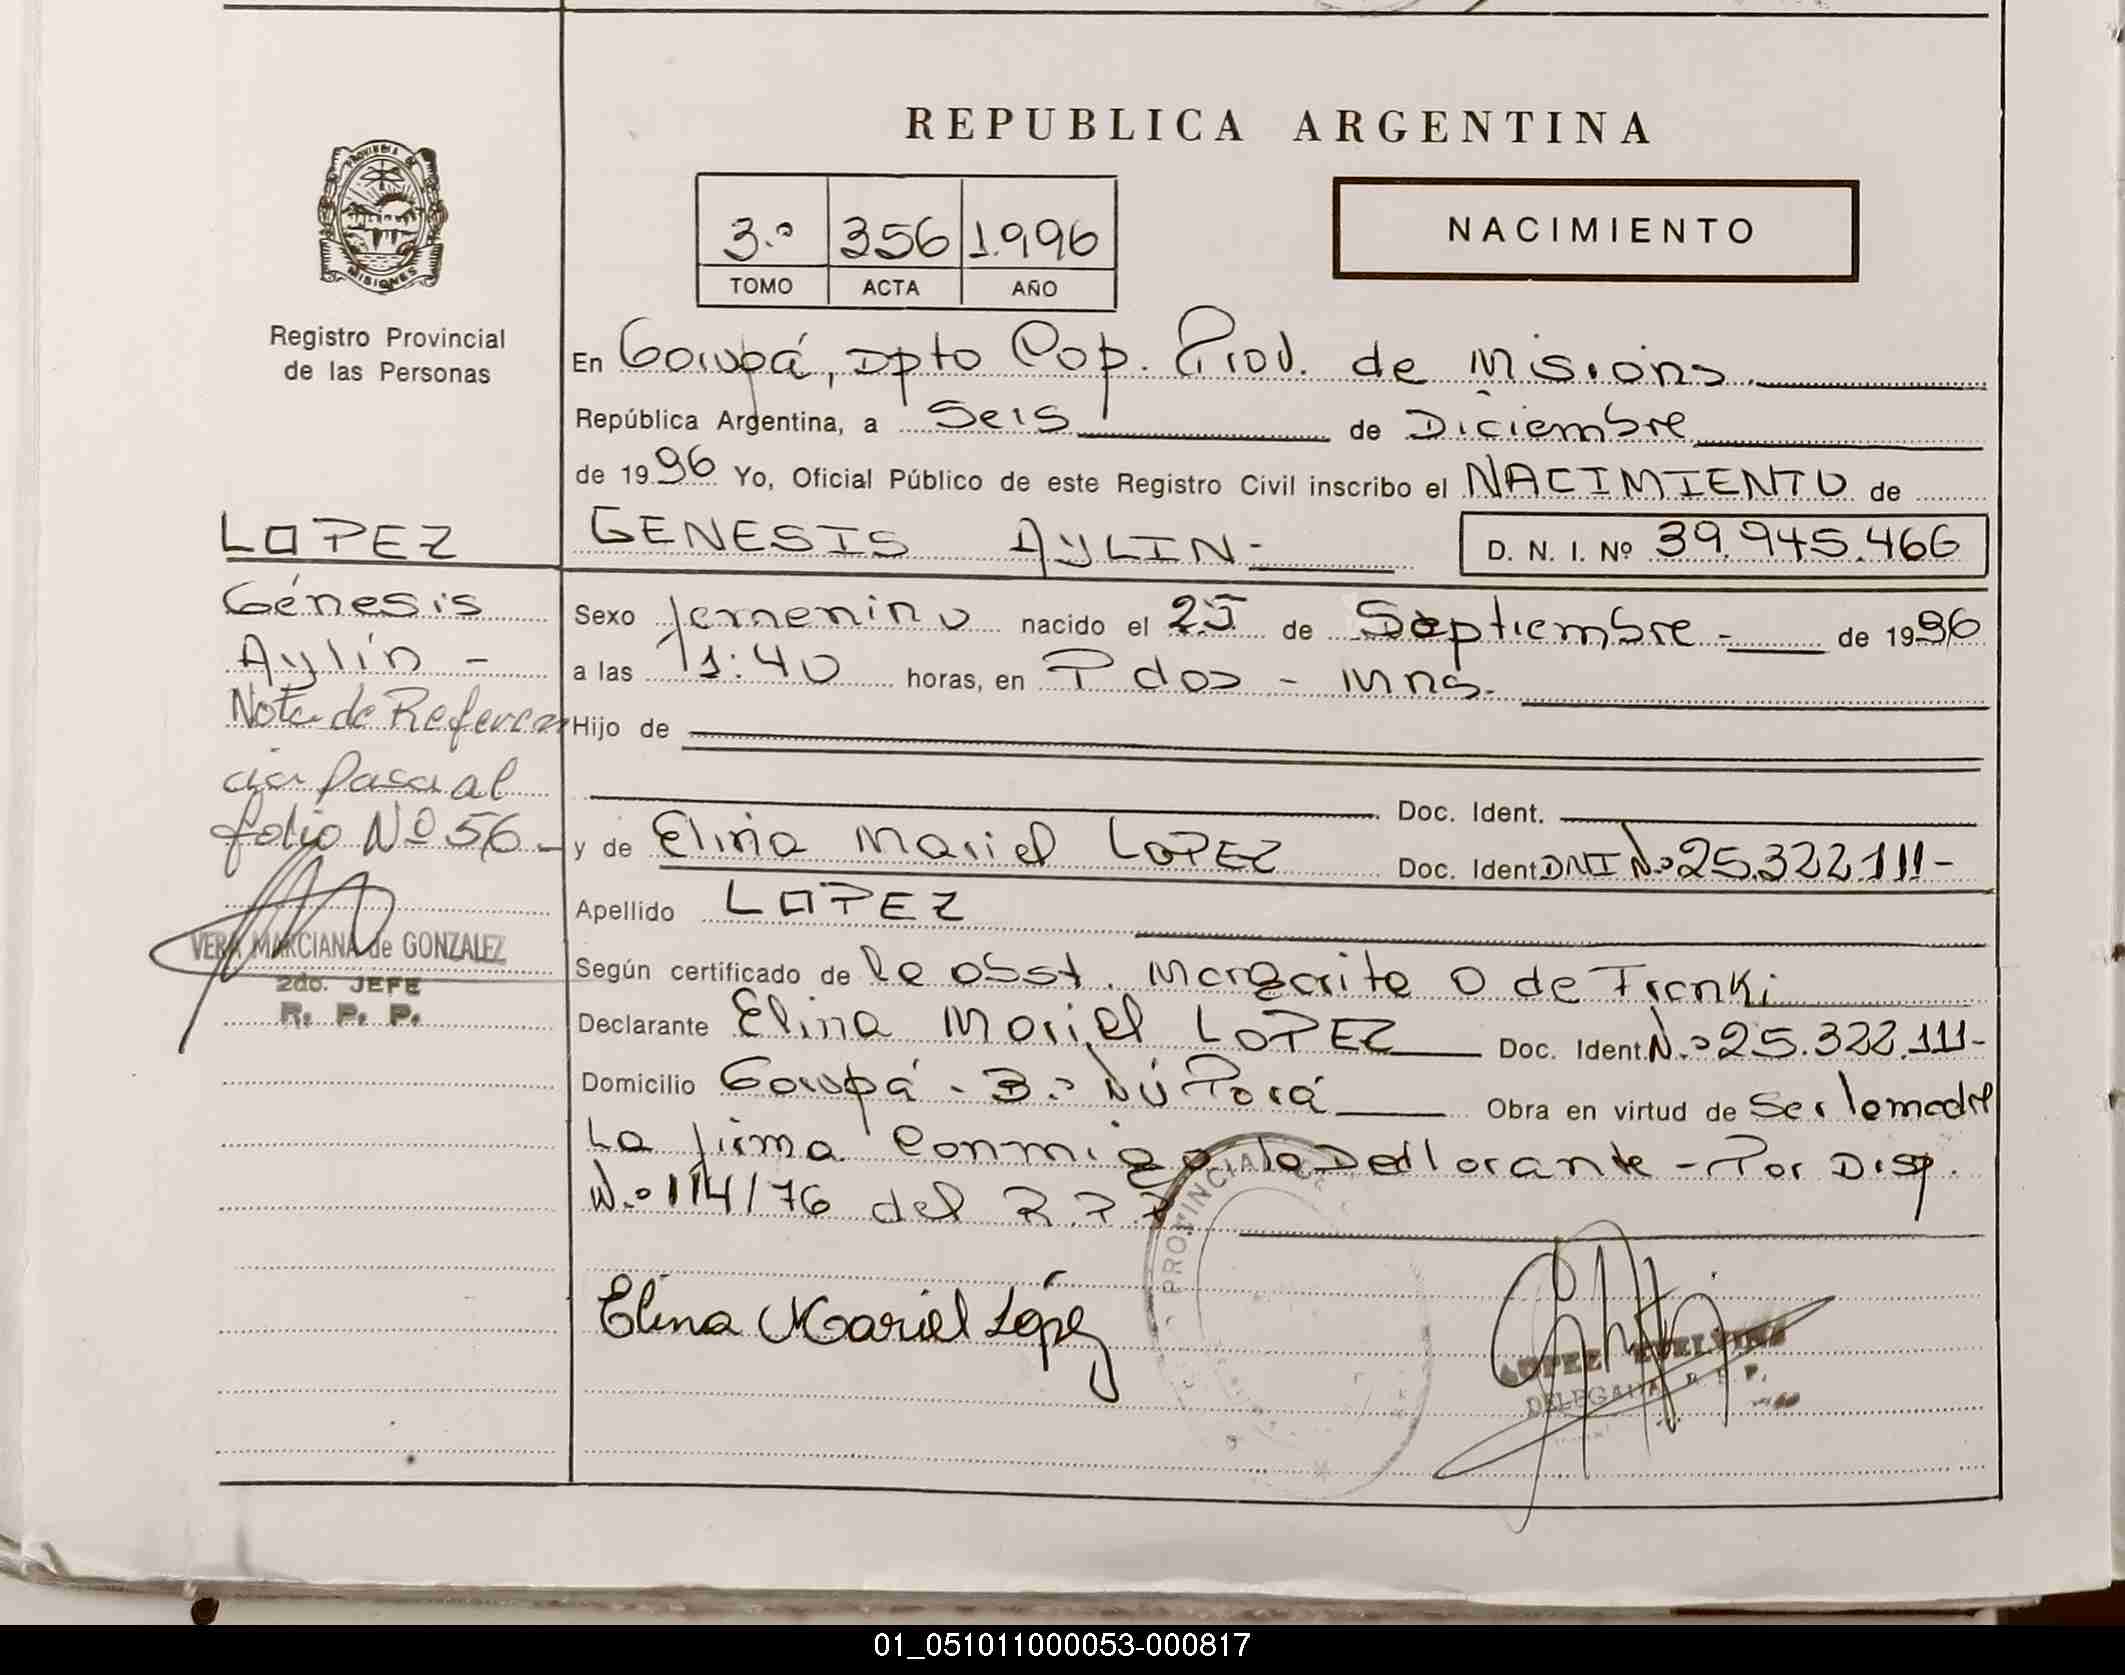 REPUBLICA ARGENTINA
PROVINCIA DE
MISIONES
Registro Provincial
de las Personas
3.º 356 1.996
TOMO ACTA AÑO
NACIMIENTO
En Garupá, Dpto Cap. Prov. de Misions
República Argentina, a Seis de Diciembre
de 1996 Yo, Oficial Público de este Registro Civil inscribo el NACIMIENTO de
GENESIS AYLIN- D. N. I. Nº 39.945.466
Sexo femenino nacido el 25 de Septiembre - de 1996
a las 11:40 horas, en Pdas - Mns.
Hijo de
Doc. Ident.
y de Elina Mariel LOPEZ Doc. Ident DNI N.º 25.322.111-
Apellido LOPEZ
Según certificado de la obst. Margarita O de Franki
Declarante Elina Mariel LOPEZ Doc. Ident. N.º 25.322.111-
Domicilio Garupá - B.º Ñú Porá Obra en virtud de Ser la madre
La firma conmigo la Declarante - Por Disp.
N.º 114/76 del R.P.P
Elina Mariel López
PROVINCIAL DE
LOPEZ EVELVINA
DELEGADA R. P. P.
LOPEZ
Génesis
Aylín -
Nota de Referen
cia Pasa al
folio Nº 56 -
VERA MARCIANA de GONZALEZ
2do. JEFE
R. P. P.
01_051011000053-000817